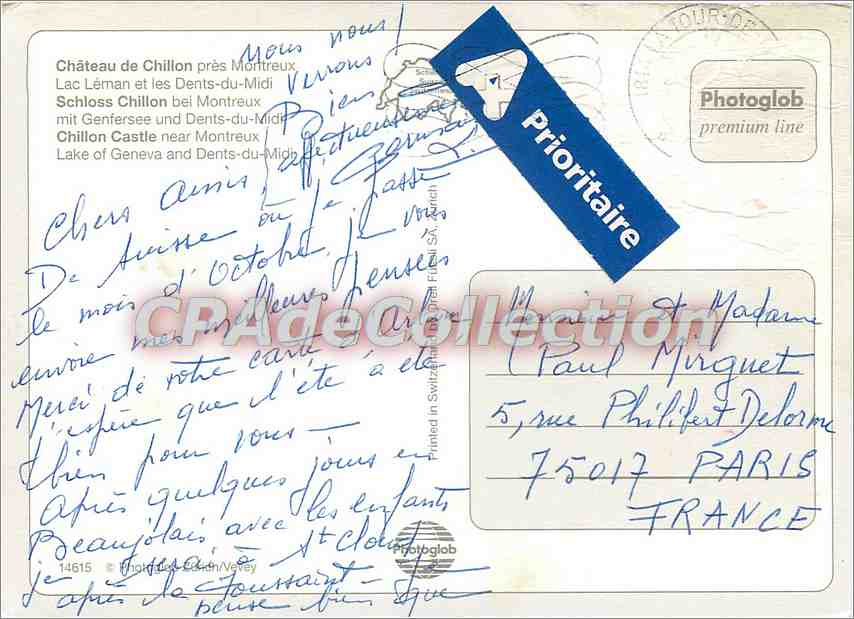 Château de Chillon près Montreux
Lac Léman et les Dents-du-Midi
Schloss Chillon bei Montreux
mit Genfersee und Dents-du-Midi
Chillon Castle near Montreux
Lake of Geneva and Dents-du-Midi
Chers amis,
De Suisse où je passe
le mois d'Octobre, je vous
envoie mes meilleures pensées
Merci de votre carte d'
J'espère que l'été a été
bien pour vous —
Après quelques jours en
Beaujolais avec les enfants
je serai à St Cloud
après la Toussaint — Je
pense bien que
nous nous
verrons!
Bien
affectueusement
A
Prioritaire
LA TOUR-DE-
Photoglob
premium line
Monsieur et Madame
Paul Mirguet
5, rue Philibert Delorme
75017 PARIS
FRANCE
Printed in Switzerland
SA, Zürich
Photoglob
14615 © Photoglob Zürich/Vevey
CPAdeCollection